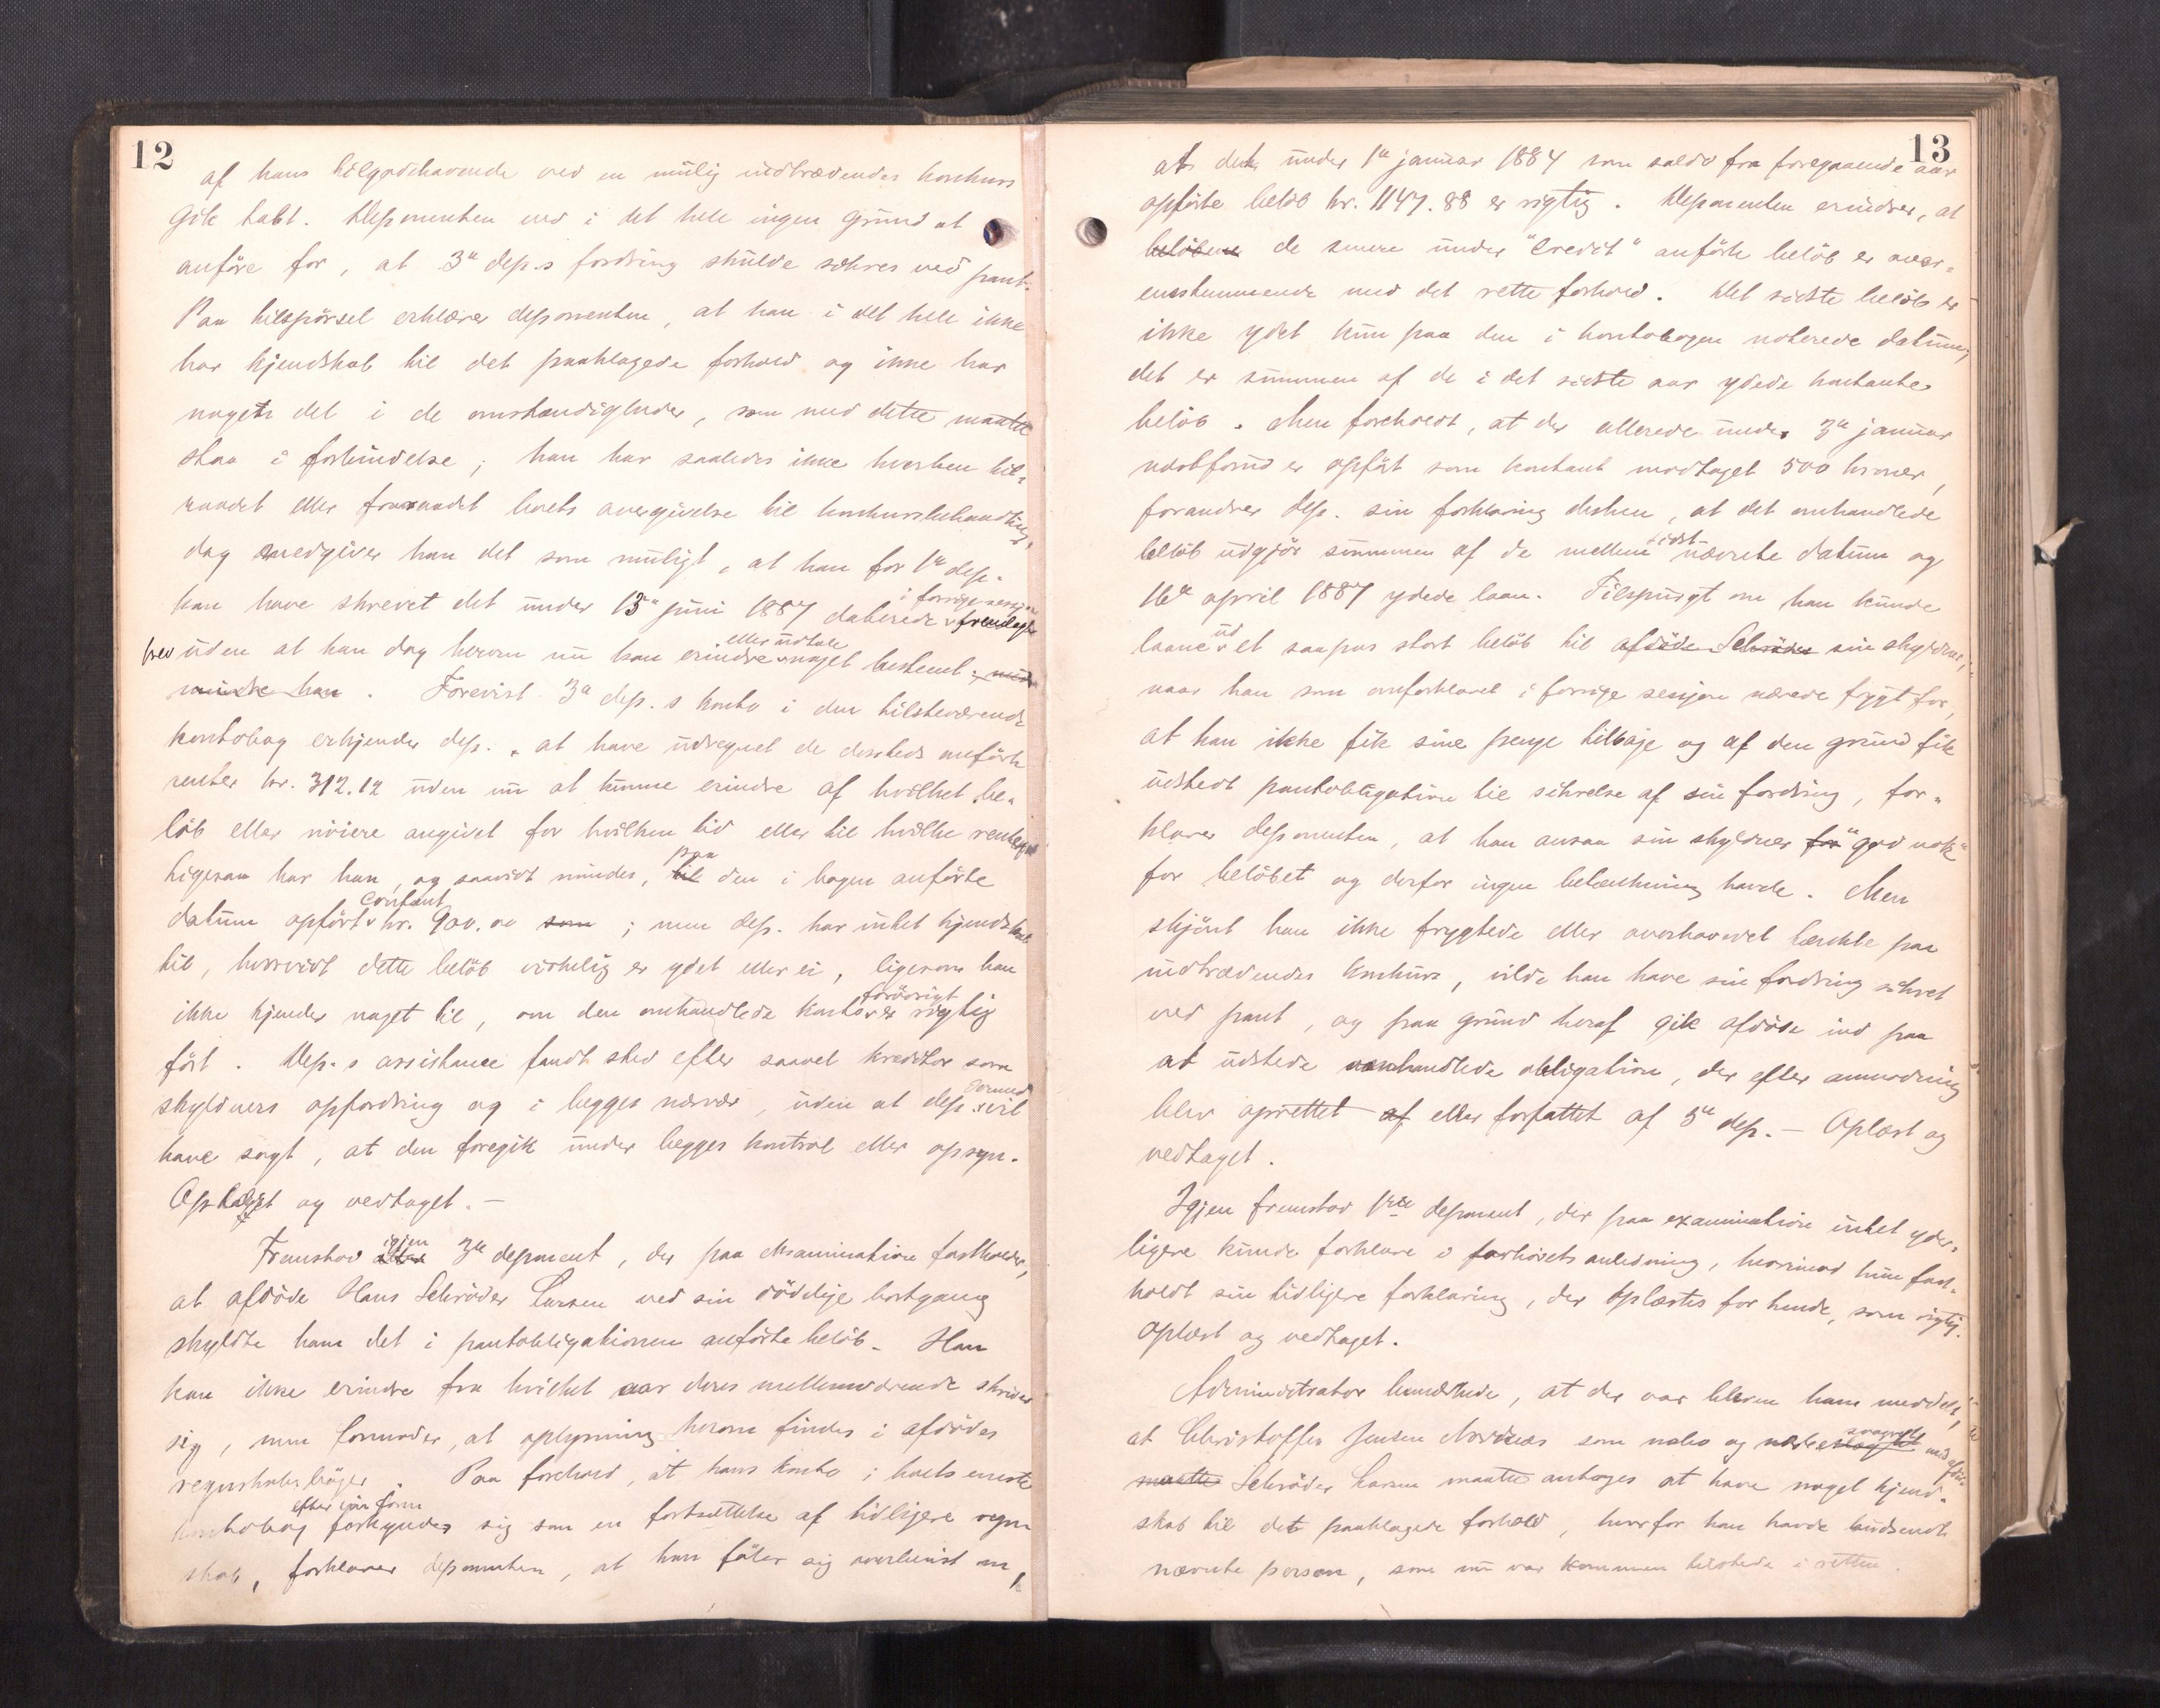 12
af hans tilgodehavende ved en mulig indtrædendes konkurs
gik tabt. Deponenten ved i det hele ingen grund at
anføre for, at 3die dep.s fordring skulde sikres ved pant.
Paa tilspørsel erklærer deponenten, at han i det hele ikke
har kjendskab til det paaklagede forhold og ikke har
nogen del i de omstændigheder, som med dette maatte
staa i forbindelse; han har saaledes ikke hverken til-
raadet eller fraraadet boets overgivelse til konkursbehandling
dog medgiver han det som muligt, at han for 1ste dep.
kan have skrevet det under 13de juni 1887 daterede i forrige session fremlagte
brev uden at han dog herom nu kan erindre eller udtale noget bestemt
minde han. Forevist 3die dep.s konto i den tilstedeværende
kontobog erkjender dep., at have udregnet de dersteds anførte
renter kr. 312.12 uden nu at kunne erindre af hvilket be-
løb eller nøiere angivet for hvilken tid eller til hvilke
Ligesaa har han, og saavidt mindes, til paa den i bogen anførte
datum opført contant kr. 900.00 som ; men dep. har intet kjendskab
til, hvorvidt dette beløb virkelig er ydet eller ei, ligesom han
ikke kjender noget til, om den omhandlede konto forøvrigt er rigtig
ført. Dep.s assistance fandt sted efter saavel kreditor som
skyldners opfordring og i begges nærvær, uden at dep. dermed vil
have sagt, at den foregik under begges kontrol eller opsyn.
Oplæst og vedtaget. –
Fremstod igjen 3die deponent, der paa eksamination fastholder,
at afdøde Hans Schrøder Larsen ved sin dødelige bortgang
skyldte ham det i pantobligationen anførte beløb. Han
kan ikke erindre fra hvilket aar deres mellemværende skriver
sig, men formoder, at oplysning herom findes i afdødes
regnskabsbøger. Paa forehold, at hans konto i boets eneste
kontobog efter sin form forkynder sig som en fortsættelse af tidligere regn-
skab, forklarer deponenten, at han føler sig overbevist om,
13
at det under 1ste januar 1884 som saldo fra foregaaende aar
opførte beløb kr. 1147.88 er rigtig. Deponenten erindrer, at
beløbene de senere under "Credit" anførte beløb er over-
ensstemmende med det rette forhold. Det sidste beløb er
ikke ydet kun paa den i kontobogen noterede datum,
det er summen af de i det sidste aar ydede kontante
beløb. Men foreholdt, at der allerede under 3die januar
udført er opført som kontant modtaget 500 kroner,
forandrer dep. sin forklaring derhen, at det omhandlede
beløb udgjør summen af de mellem sidst nævnte datum og
16de april 1887 ydede laan. Tilspurgt om han kunde
laane ud et saapas stort beløb til afdøde Schrøder sin skyldner,
naar han som omforklaret i forrige session nærede frygt for,
at han ikke fik sine penge tilbage og af den grund fik
udstedt pantobligation til sikrelse af sin fordring, for-
klarer deponenten, at han ansaa sin skyldner for "god nok"
for beløbet og derfor ingen betænkning havde. Men
skjønt han ikke frygtede eller overhovedet tænkte paa
indtrædendes konkurs, vilde han have sin fordring sikret
ved pant, og paa grund heraf gik afdøde ind paa
at udstede omhandlede obligation, der efter anmodning
blev oprettet af eller forfattet af 5te dep. – Oplæst og
vedtaget.
Igjen fremstod 1ste deponent, der paa examination intet yder-
ligere kunde forklare i forhørets anledning, hvorimod hun fast-
holdt sin tidligere forklaring, der oplæstes for hende, som rigtig.
Oplæst og vedtaget.
Administrator bemærkede, at der var bleven ham meddelt,
at Christoffer Jensen Nordnæs som nabo og svoger med afdøde
maatte Schrøder Larsen maatte antages at have noget kjend-
skab til det paaklagede forhold, hvorfor han havde budsendt
nævnte person, som nu var kommen tilstede i retten.